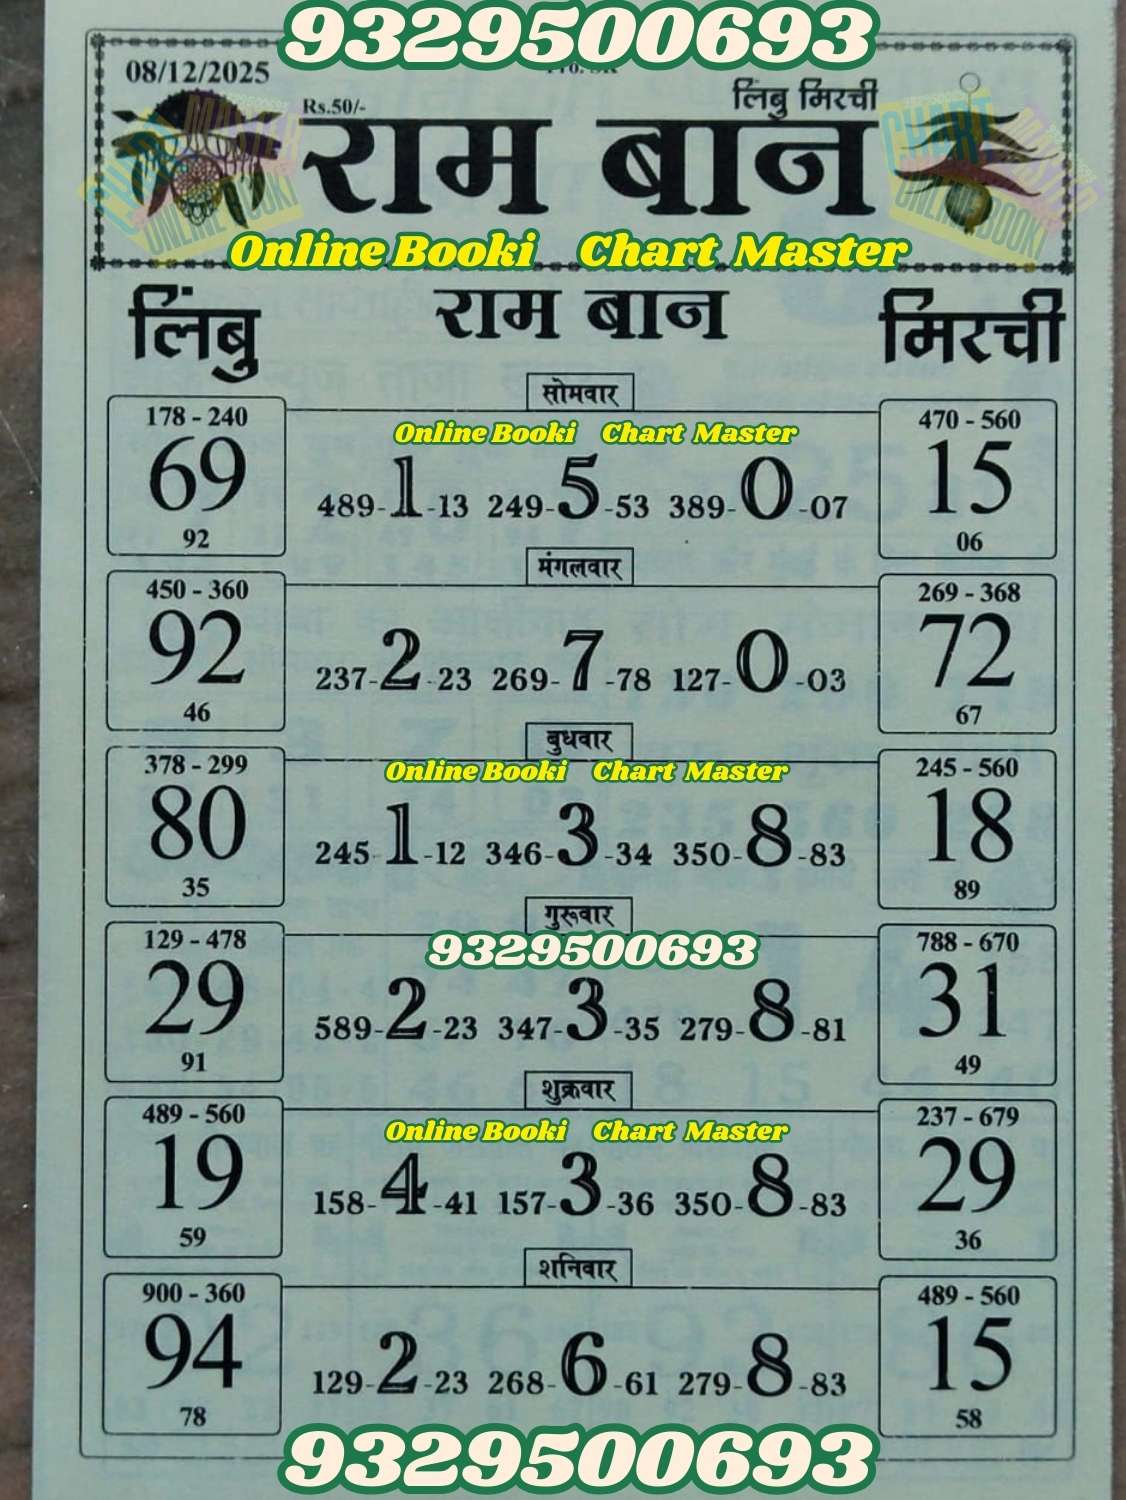 9329500693
08/12/2025
Rs.50/-
लिंबु मिरची
राम बान
Online Booki Chart Master
लिंबु राम बान मिरची
सोमवार
178 - 240
69
92
Online Booki Chart Master
489-1-13 249-5-53 389-0-07
470 - 560
15
06
मंगलवार
450 - 360
92
46
237-2-23 269-7-78 127-0-03
269 - 368
72
67
बुधवार
378 - 299
80
35
Online Booki Chart Master
245-1-12 346-3-34 350-8-83
245 - 560
18
89
गुरूवार
129 - 478
29
91
9329500693
589-2-23 347-3-35 279-8-81
788 - 670
31
49
शुक्रवार
489 - 560
19
59
Online Booki Chart Master
158-4-41 157-3-36 350-8-83
237 - 679
29
36
शनिवार
900 - 360
94
78
129-2-23 268-6-61 279-8-83
489 - 560
15
58
9329500693